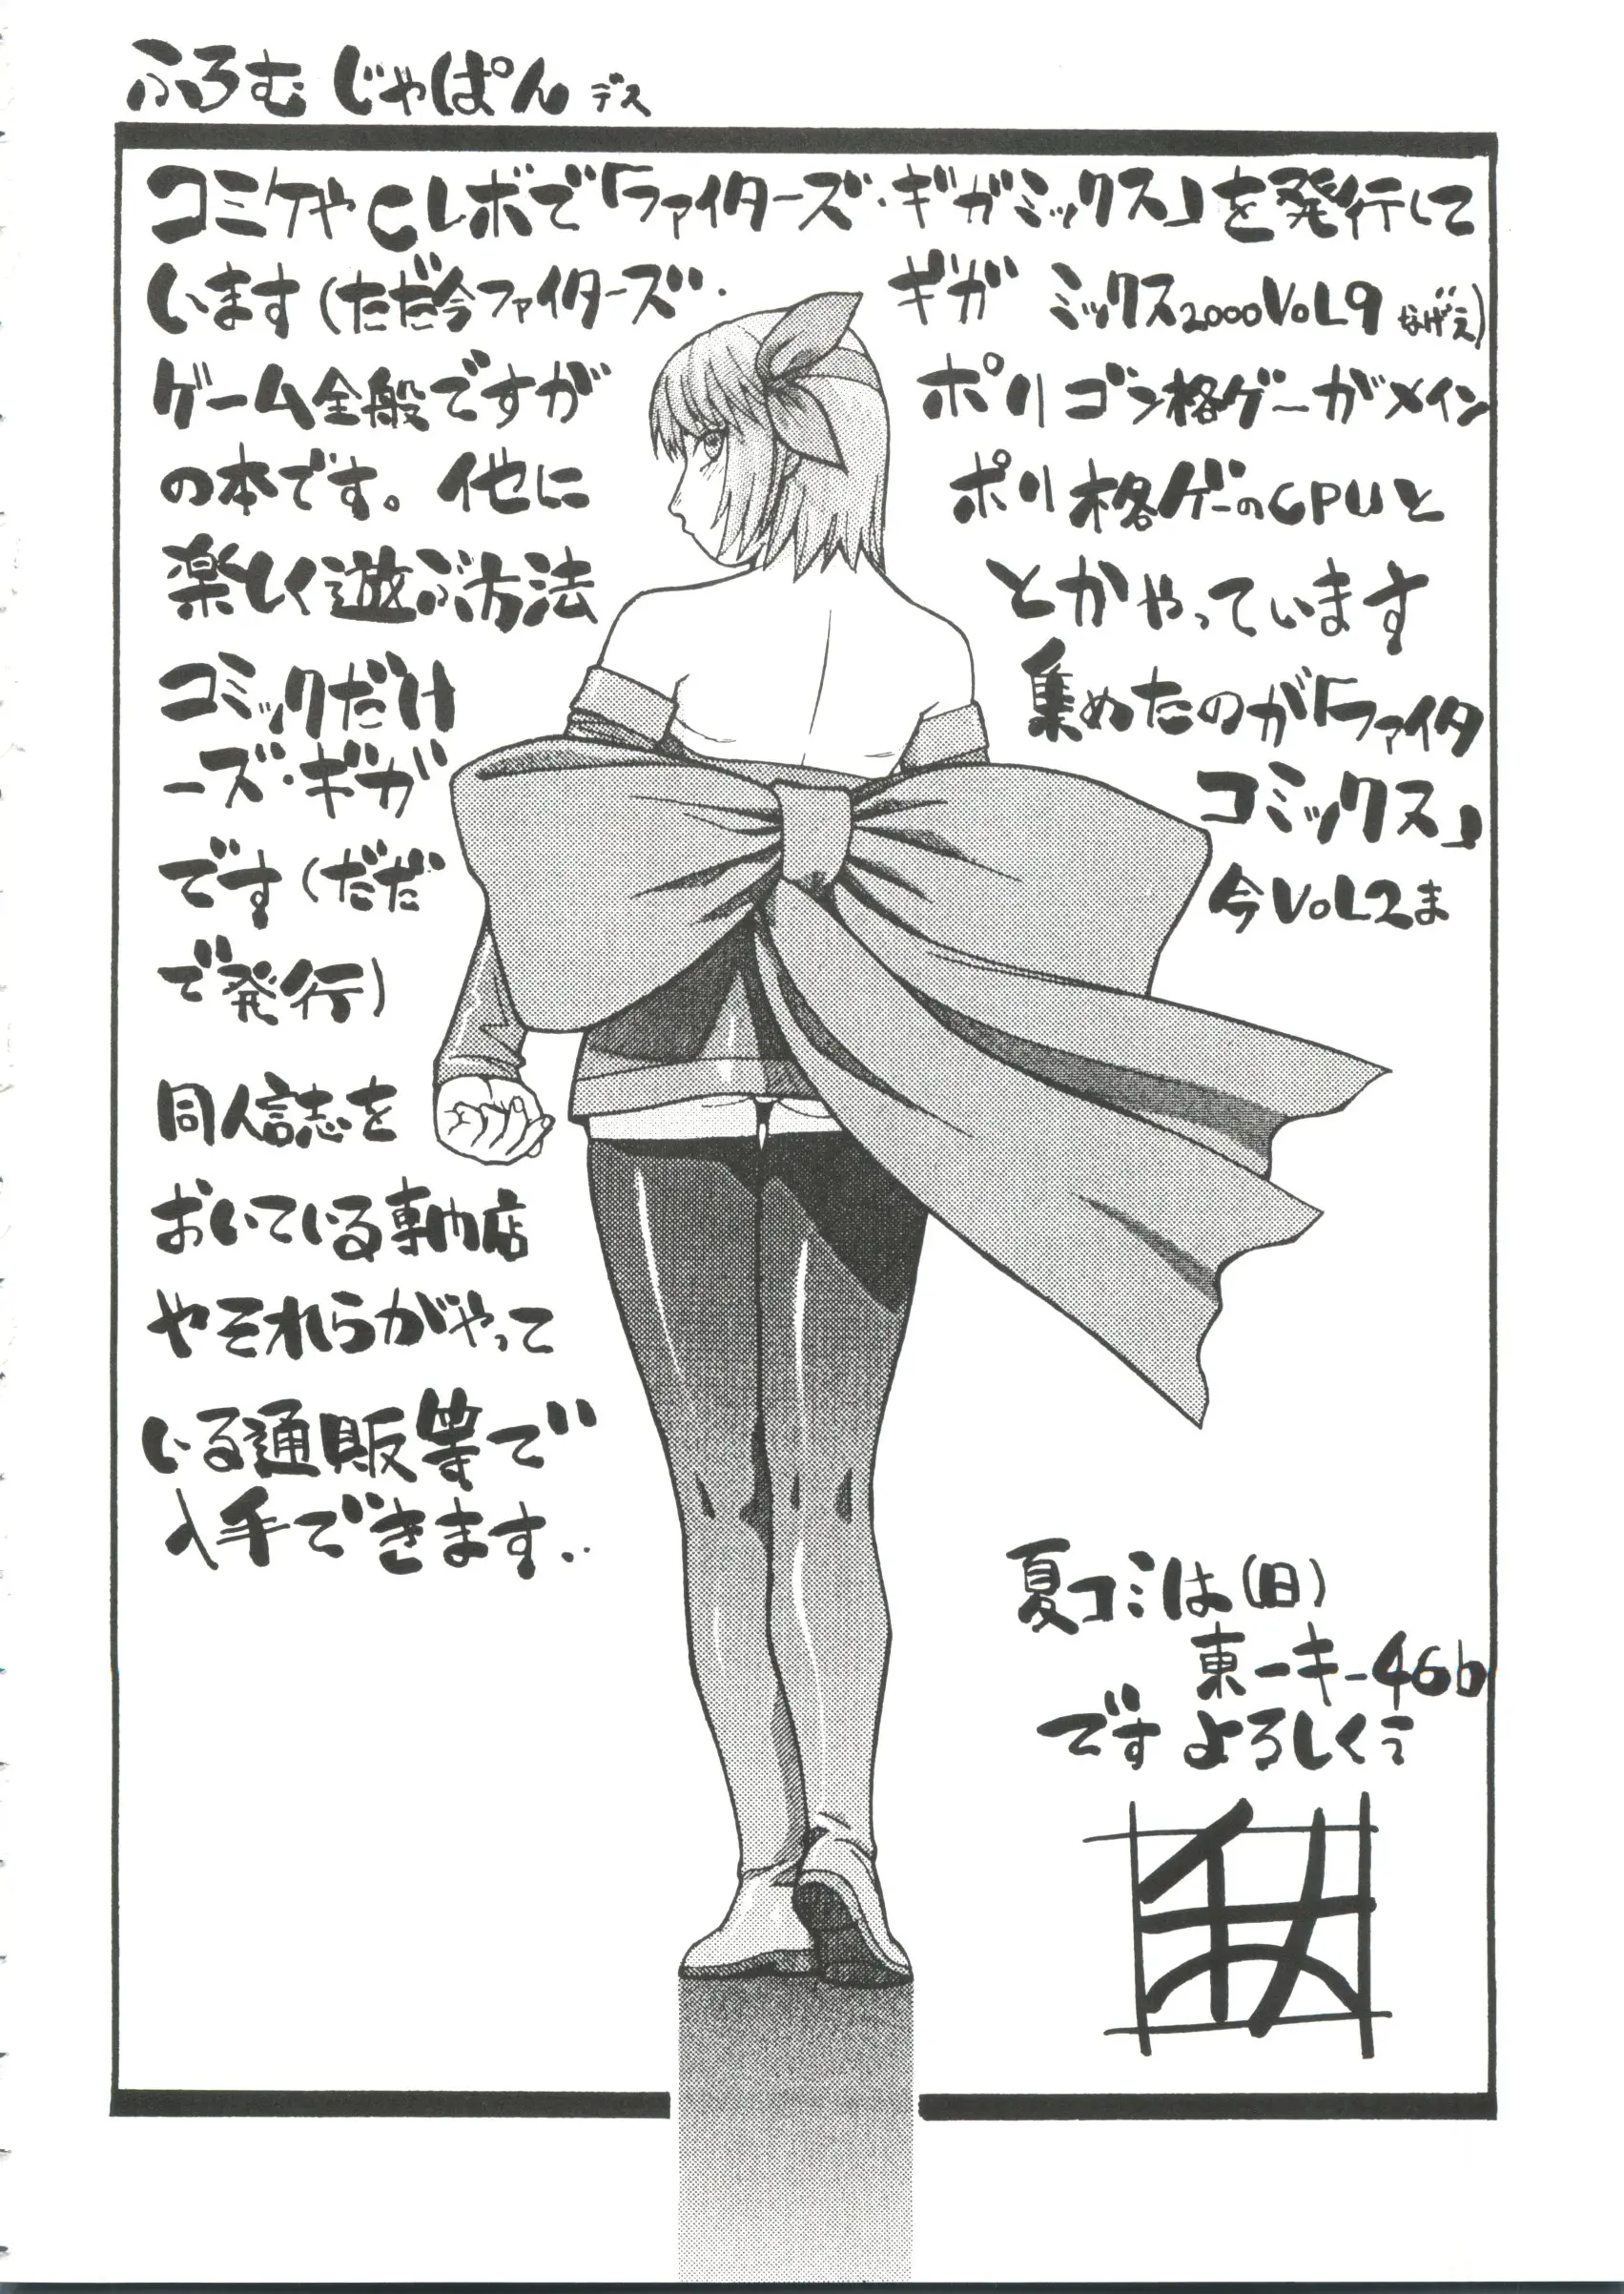 ふろむ じゃぱん デス
コミケやCレボで「ファイターズ・ギガミックス」を発行して
います(ただ今ファイターズ・ギガ ミックス2000VOL9 なげえ)
ゲーム全般ですが ポリゴン格ゲーがメイン
の本です。他に ポリ格ゲーのCPUと
楽しく遊ぶ方法 とかやっています
コミックだけ 集めたのが「ファイタ
ーズ・ギガ コミックス」
です(ただ 今VOL2ま
で発行)
同人誌を
おいている専門店
やそれらがやって
いる通販等で
入手できます..
夏コミは(日)
東-キ-46b
です よろしくっ